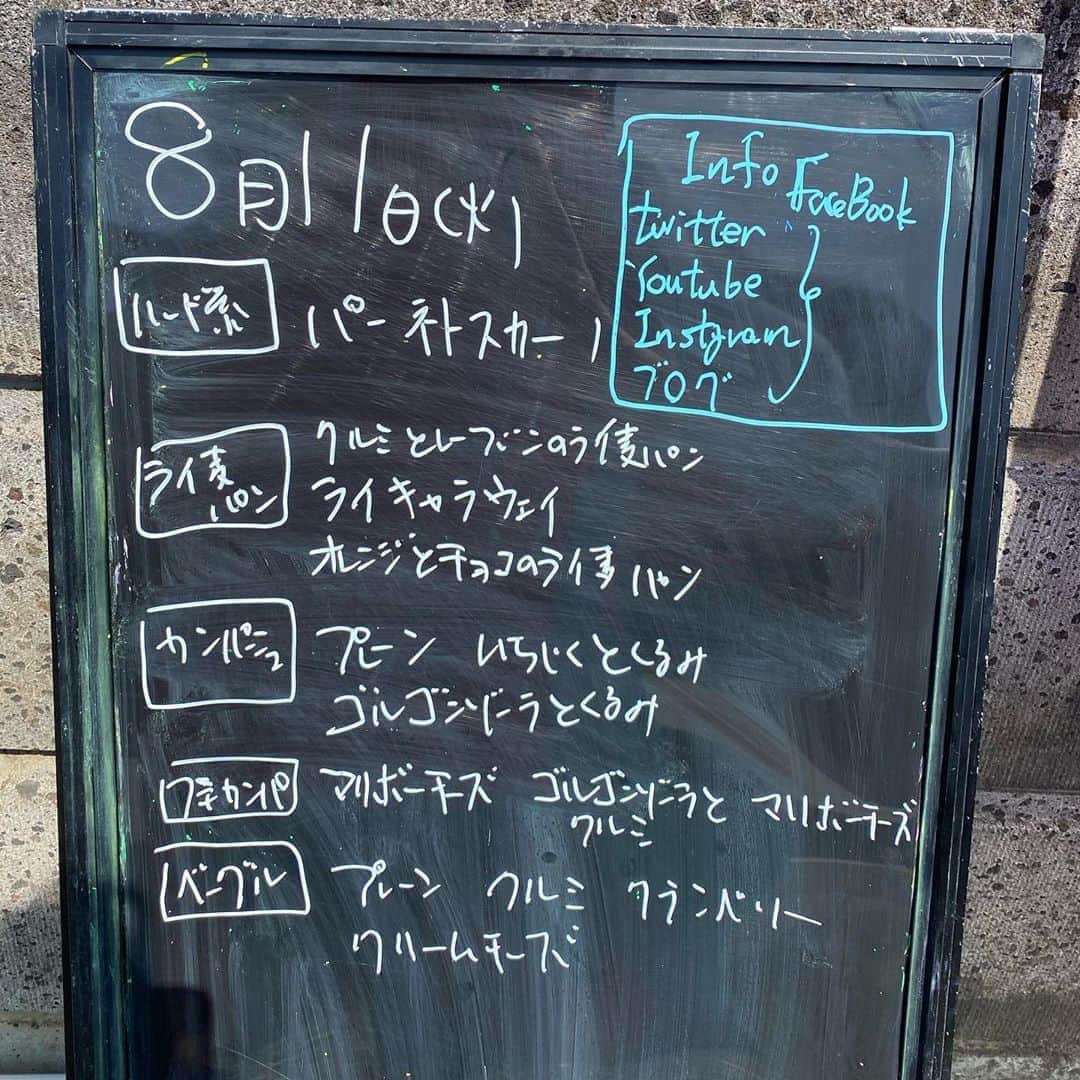 8月11日(火)
Info
FaceBook
twitter
Youtube
Instgram
ブログ
ハード系 パーネトスカーノ
ライ麦パン クルミとレーズンのライ麦パン
ライキャラウェイ
オレンジとチョコのライ麦パン
カンパーニュ プレーン いちじくとくるみ
ゴルゴンゾーラとくるみ
カンパ マリボーチーズ ゴルゴンゾーラとクルミ マリボーチーズ
ベーグル プレーン クルミ クランベリー
クリームチーズ